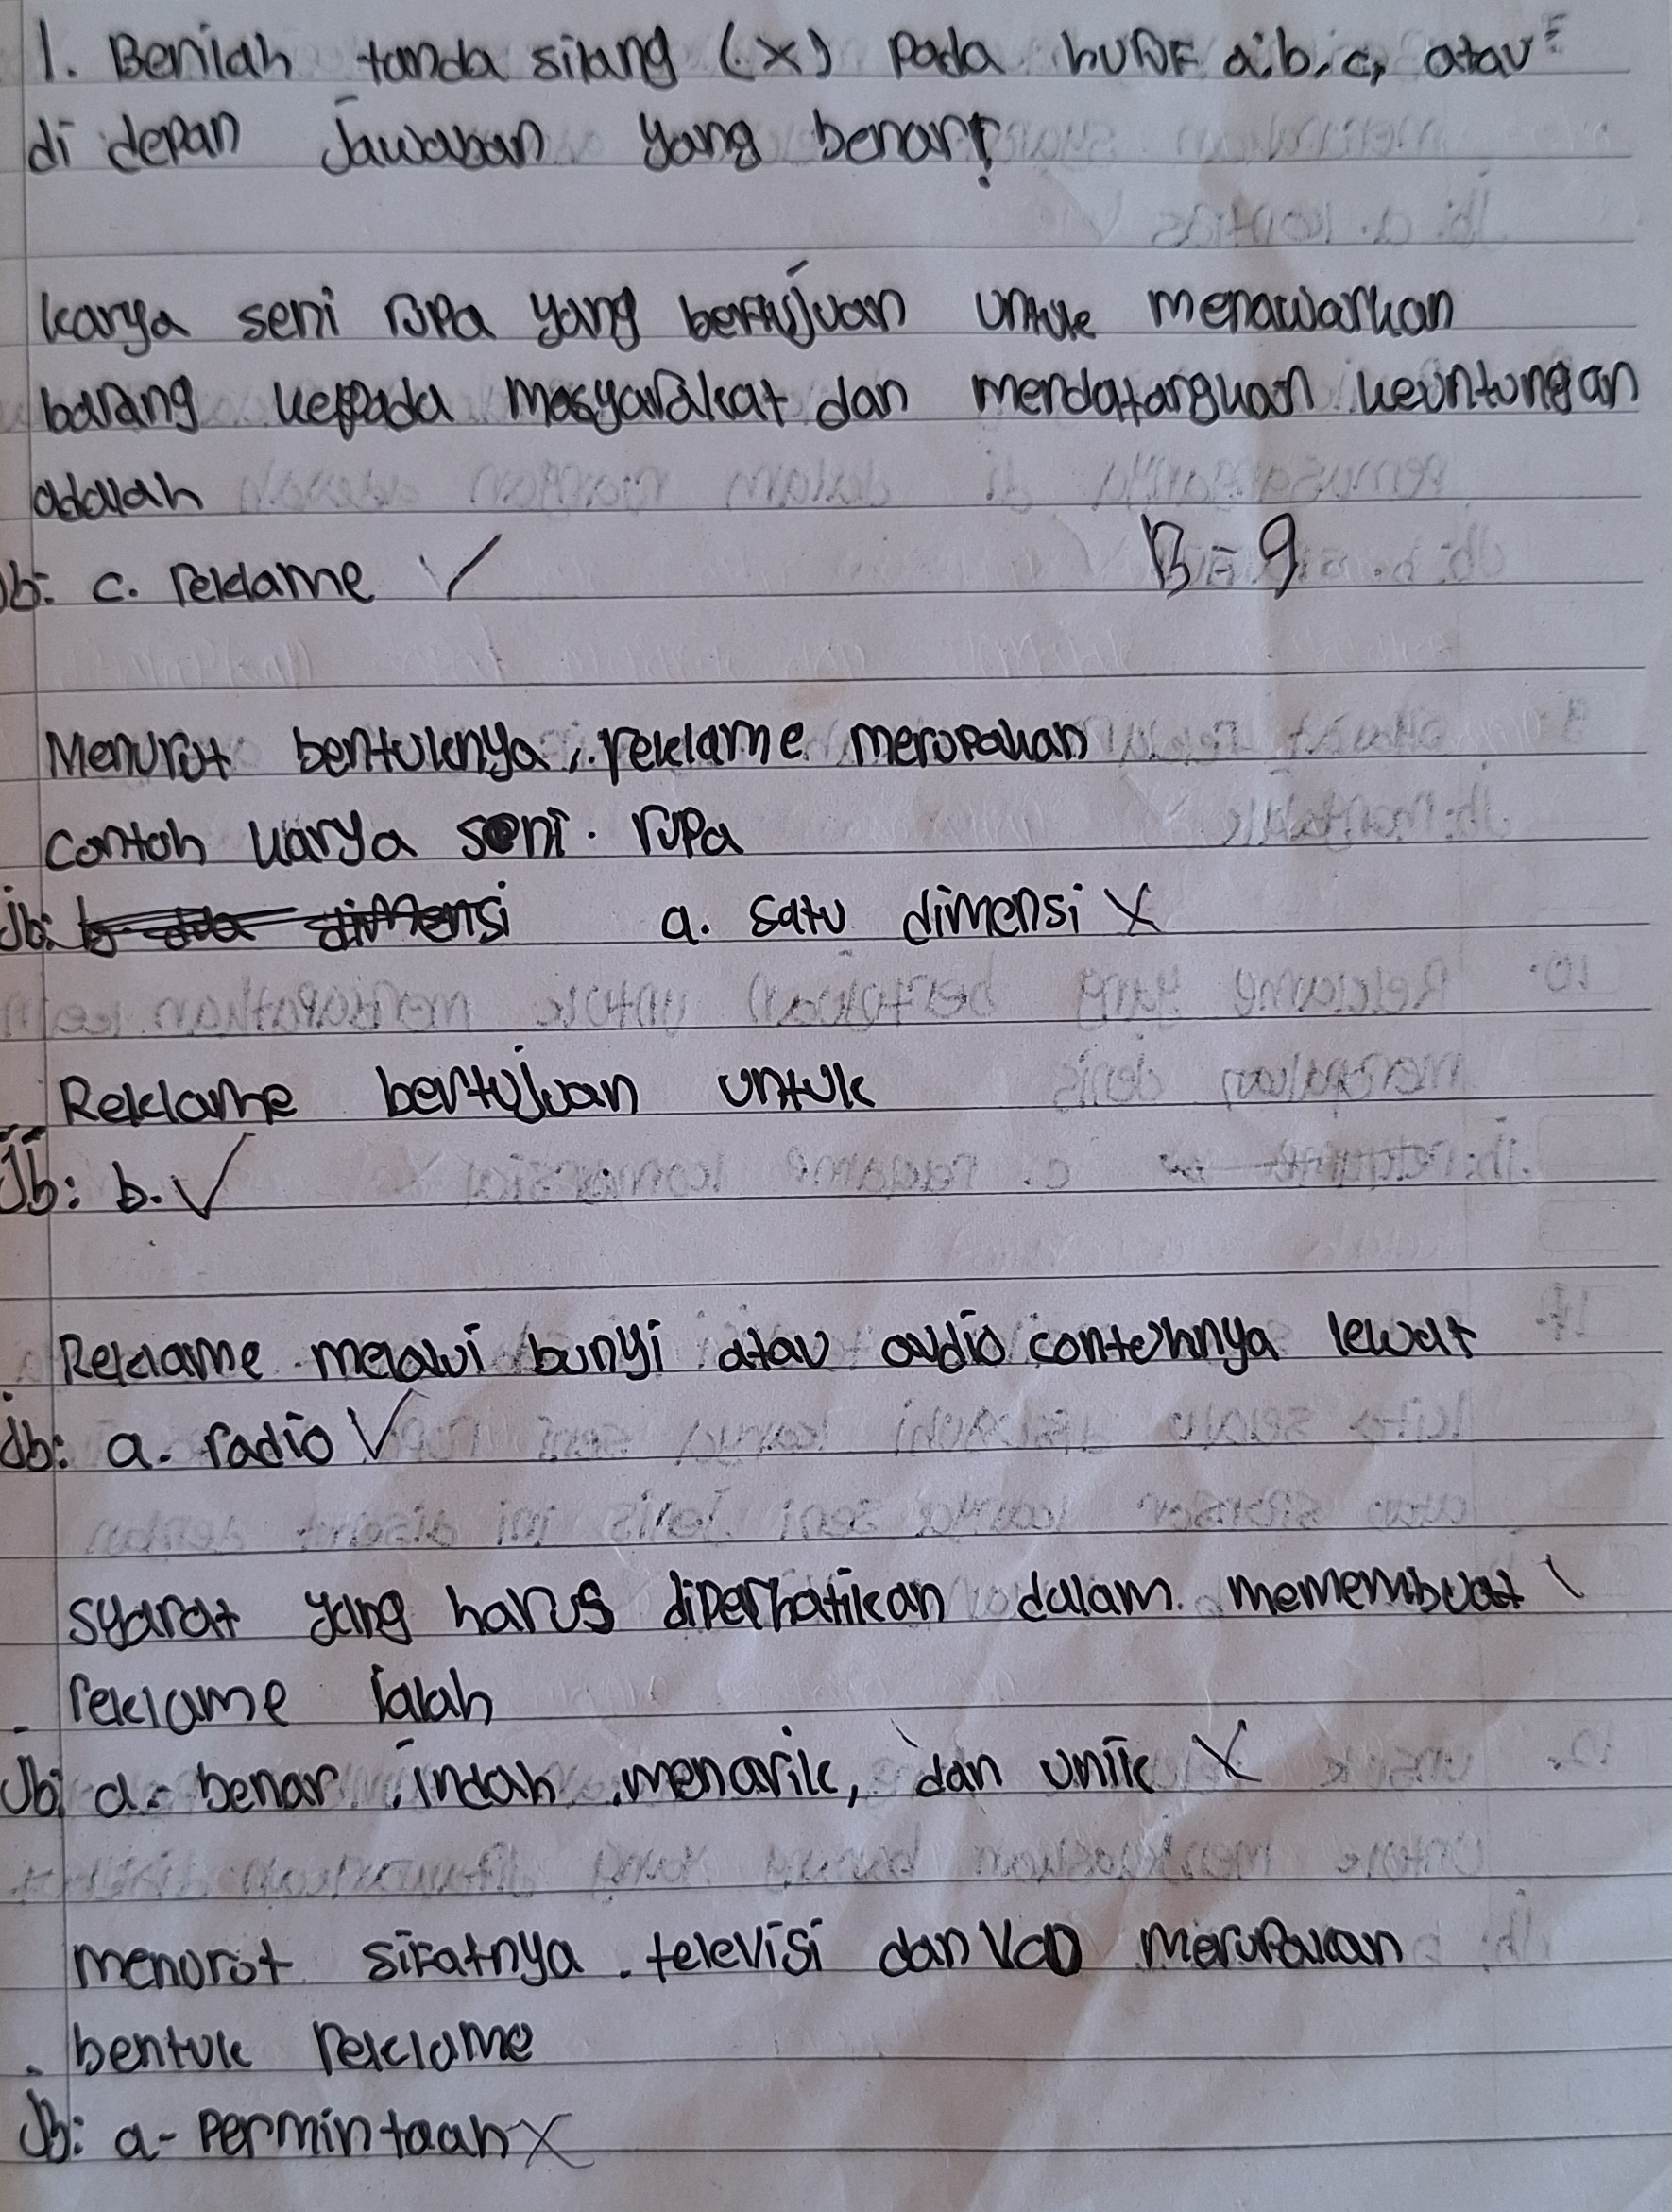 1. Berilah tanda silang (x) pada huruf a,b,c, atau
di depan jawaban yang benar!
karya seni rupa yang bertujuan untuk menawarkan
barang kepada masyarakat dan mendatangkan keuntungan
adalah
Jb: c. reklame ✓
B = 9
Menurut bentuknya, reklame merupakan
contoh karya seni. rupa
Jb: b dua dimensi a. satu dimensi X
Reklame bertujuan untuk
Jb: b. ✓
Reklame melalui bunyi atau audio contohnya lewat
Jb: a. radio ✓
syarat yang harus diperhatikan dalam memembuat
reklame ialah
Jb: a. benar, indah, menarik, dan unik X
menurut sifatnya. televisi dan VCD merupakan
bentuk reklame
Jb: a- permintaan X